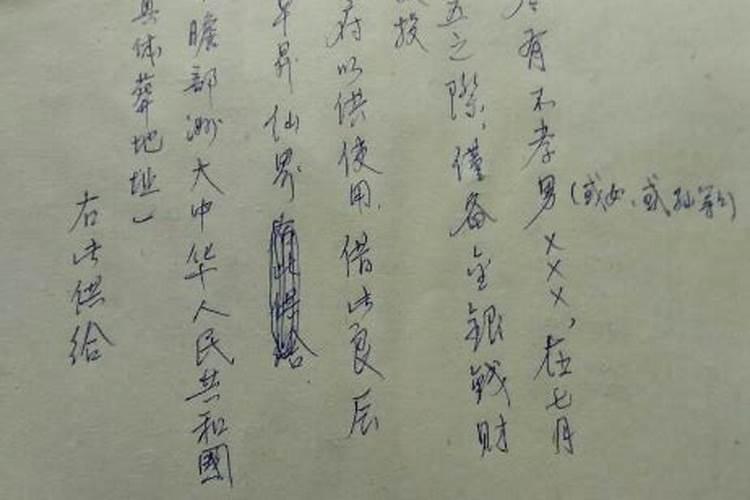 有不孝男(或女、或孙等)×××,在七月
五之际,僅备金銀钱财
投
府以供使用,借此良辰
早昇仙界
瞻部洲大中华人民共和國
具体葬地址)
右此供给